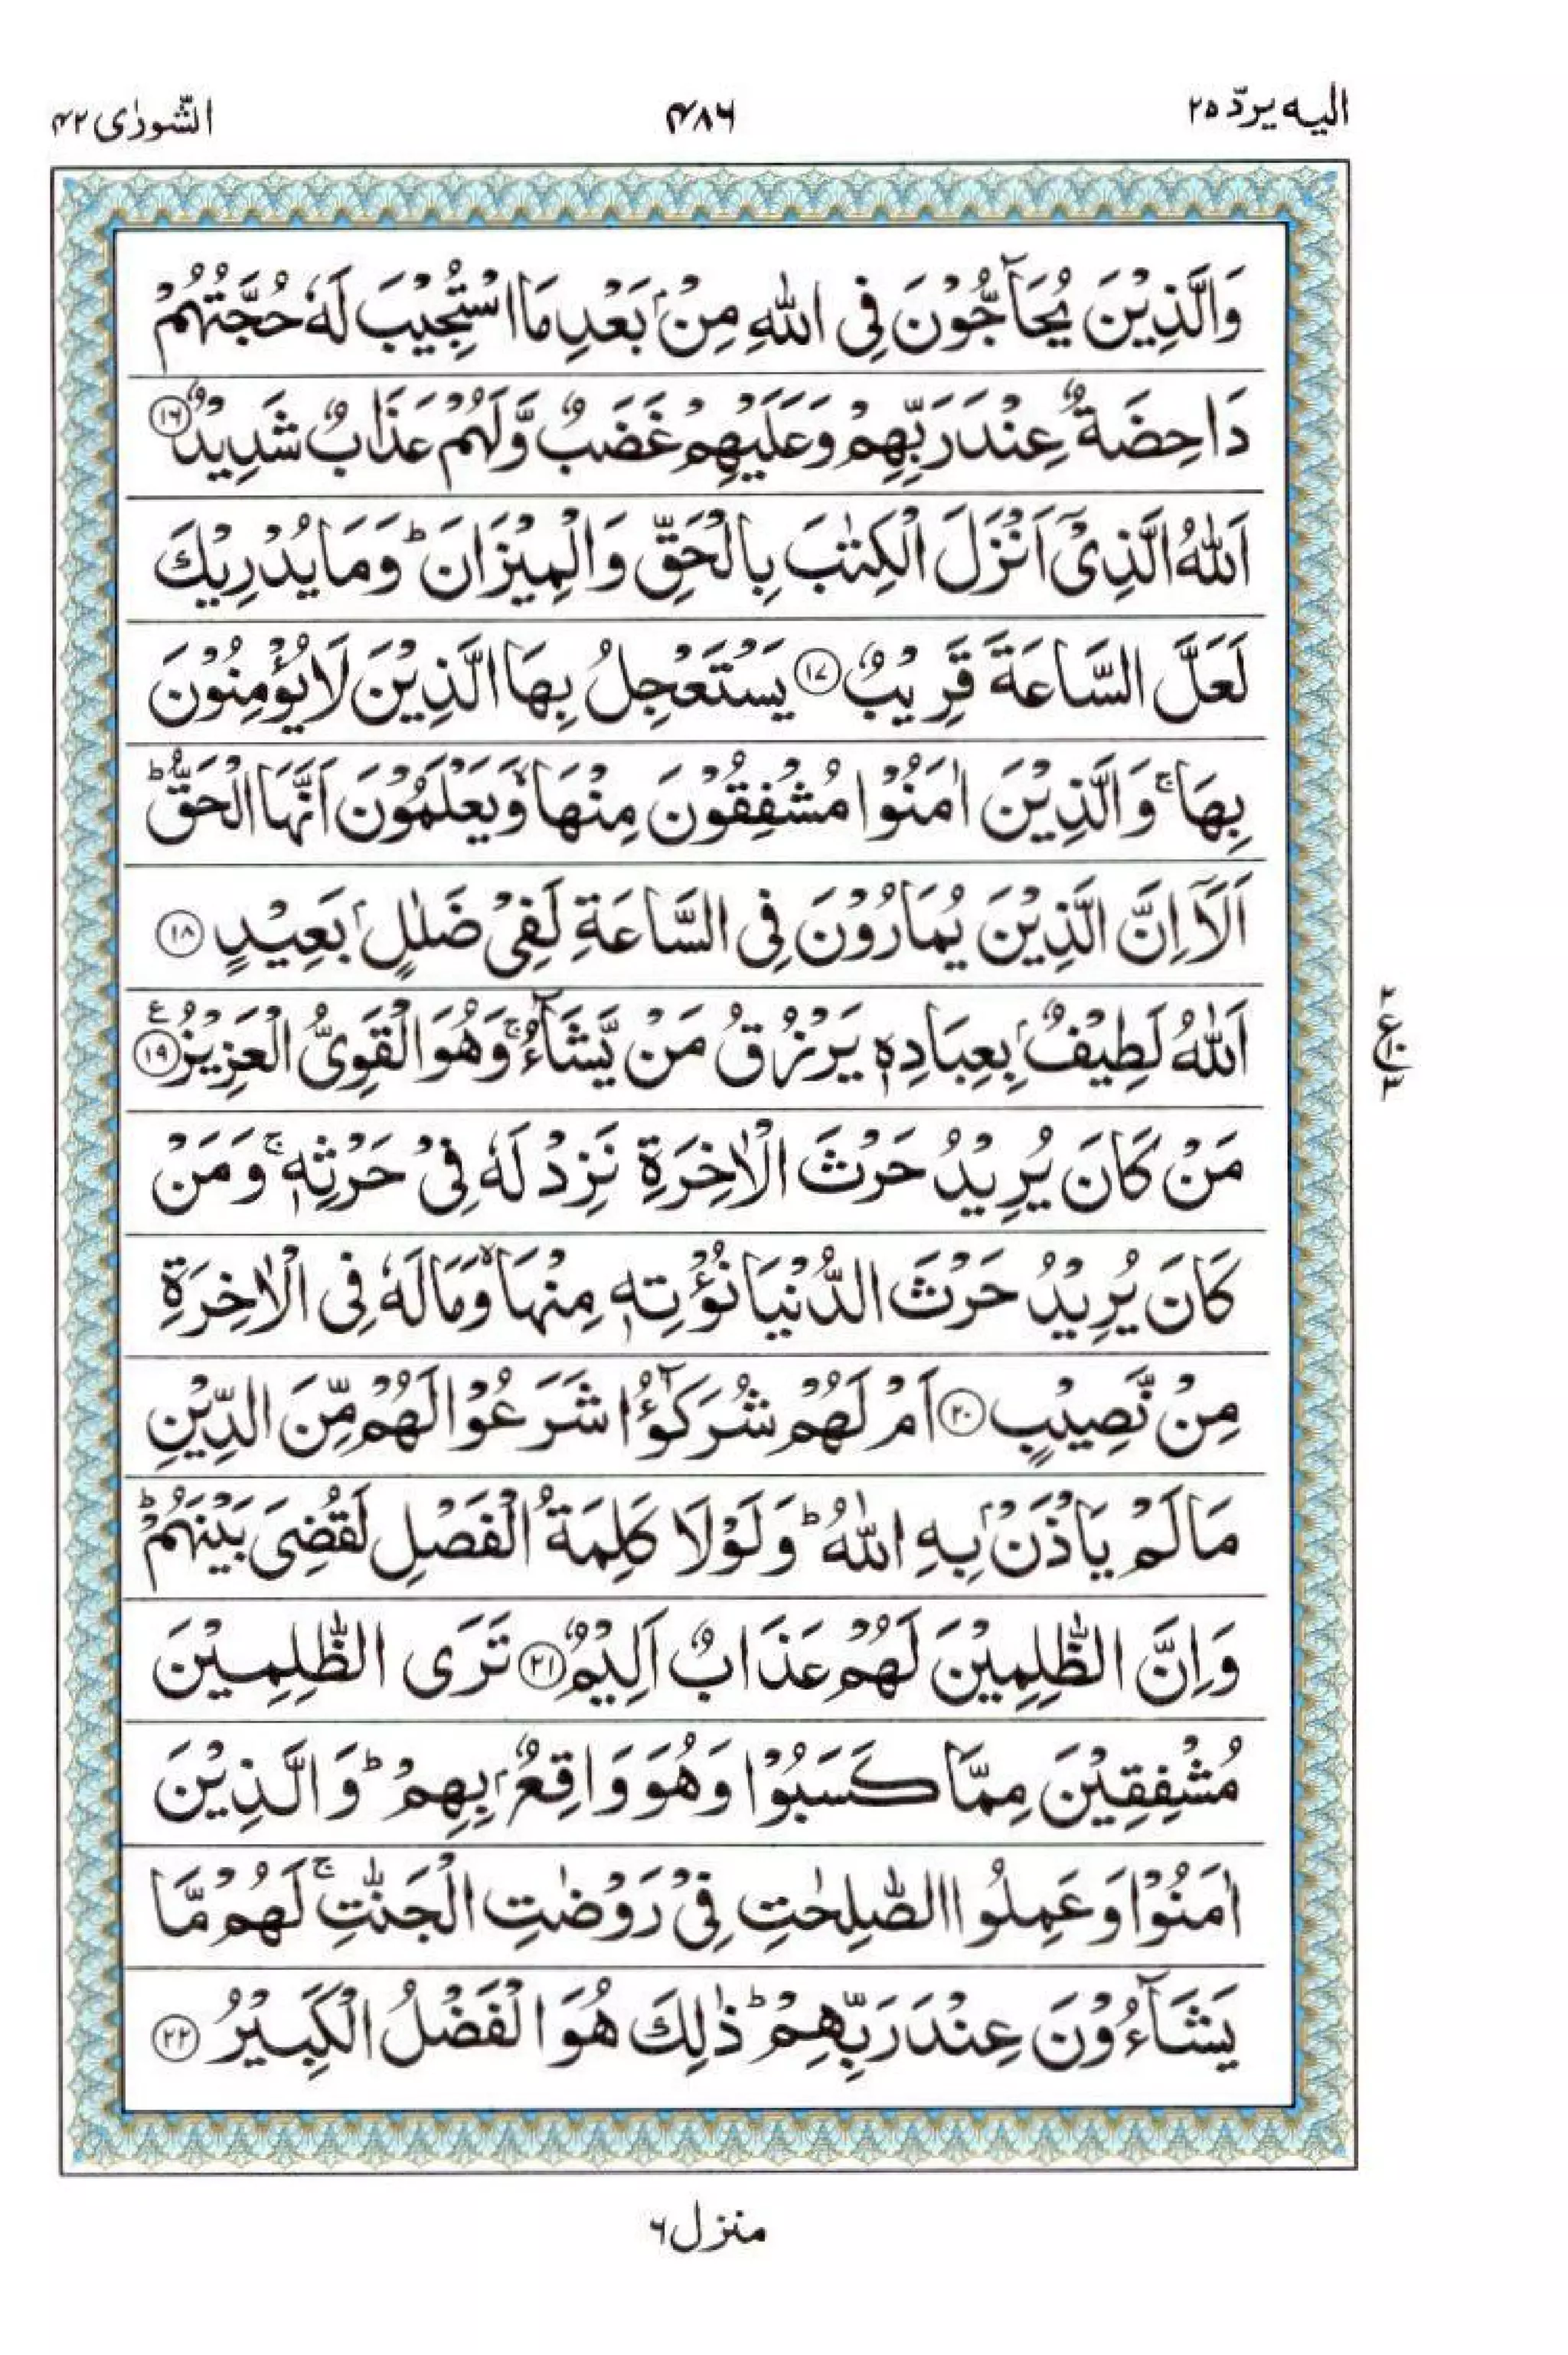 الیه یردّ ۲۵
۴۸۶
الشّورٰی ۴۲
وَالَّذِيْنَ يُحَآجُّوْنَ فِى اللّٰهِ مِنْۢ بَعْدِ مَا اسْتُجِيْبَ لَهٗ حُجَّتُهُمْ
دَاحِضَةٌ عِنْدَ رَبِّهِمْ وَعَلَيْهِمْ غَضَبٌ وَّلَهُمْ عَذَابٌ شَدِيْدٌ ۝۱۶
اَللّٰهُ الَّذِىْٓ اَنْزَلَ الْكِتٰبَ بِالْحَقِّ وَالْمِيْزَانَ ؕ وَمَا يُدْرِيْكَ
لَعَلَّ السَّاعَةَ قَرِيْبٌ ۝۱۷ يَسْتَعْجِلُ بِهَا الَّذِيْنَ لَا يُؤْمِنُوْنَ
بِهَا ۚ وَالَّذِيْنَ اٰمَنُوْا مُشْفِقُوْنَ مِنْهَا ۙ وَيَعْلَمُوْنَ اَنَّهَا الْحَقُّ ؕ
اَلَآ اِنَّ الَّذِيْنَ يُمَارُوْنَ فِى السَّاعَةِ لَفِىْ ضَلٰلٍۢ بَعِيْدٍ ۝۱۸
اَللّٰهُ لَطِيْفٌۢ بِعِبَادِهٖ يَرْزُقُ مَنْ يَّشَآءُ ۚ وَهُوَ الْقَوِىُّ الْعَزِيْزُ ۝۱۹ ع
۲ ع ۱۰ ۳
مَنْ كَانَ يُرِيْدُ حَرْثَ الْاٰخِرَةِ نَزِدْ لَهٗ فِىْ حَرْثِهٖ ۚ وَمَنْ
كَانَ يُرِيْدُ حَرْثَ الدُّنْيَا نُؤْتِهٖ مِنْهَا ۙ وَمَا لَهٗ فِى الْاٰخِرَةِ
مِنْ نَّصِيْبٍ ۝۲۰ اَمْ لَهُمْ شُرَكٰٓؤُا شَرَعُوْا لَهُمْ مِّنَ الدِّيْنِ
مَا لَمْ يَاْذَنْۢ بِهِ اللّٰهُ ؕ وَلَوْلَا كَلِمَةُ الْفَصْلِ لَقُضِىَ بَيْنَهُمْ ؕ
وَاِنَّ الظّٰلِمِيْنَ لَهُمْ عَذَابٌ اَلِيْمٌ ۝۲۱ تَرَى الظّٰلِمِيْنَ
مُشْفِقِيْنَ مِمَّا كَسَبُوْا وَهُوَ وَاقِعٌۢ بِهِمْ ؕ وَالَّذِيْنَ
اٰمَنُوْا وَعَمِلُوا الصّٰلِحٰتِ فِىْ رَوْضٰتِ الْجَنّٰتِ ۚ لَهُمْ مَّا
يَشَآءُوْنَ عِنْدَ رَبِّهِمْ ؕ ذٰلِكَ هُوَ الْفَضْلُ الْكَبِيْرُ ۝۲۲
منزل ۶